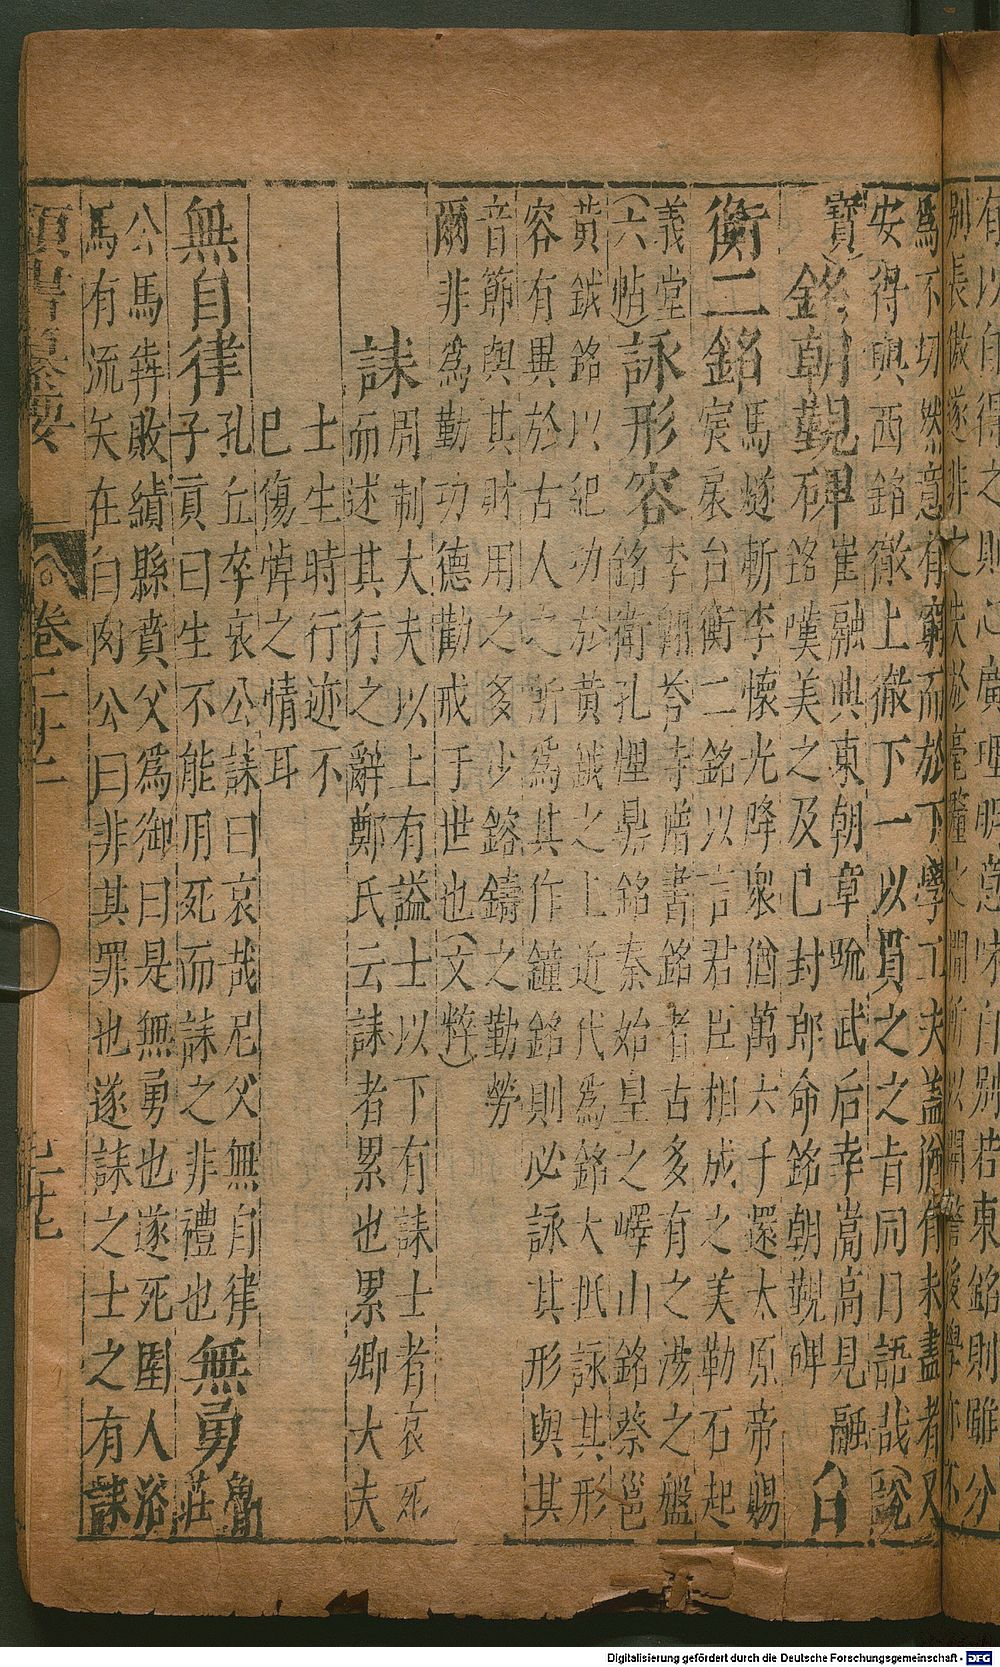 爲不切然意有窮而於下學工夫蓋猶有未盡者又
安得與西銘徹上徹下一以貫之之旨同日語哉(說
寶)銘朝覲碑崔融典東朝章䟽武后幸嵩高見融
銘嘆美之及巳封郎命銘朝覲碑台
衡二銘馬燧斬李懷光降衆猶萬六千還太原帝賜
宸扆台衡二銘以言君臣相成之美勒石起
義堂
(六帖)詠形容李翺荅寺僧書銘者古多有之湯之盤
銘衛孔悝鼎銘秦始皇之嶧山銘蔡邕
黃鉞銘以紀功於黃鉞之上近代爲銘大抵詠其形
容有異於古人之所爲其作鐘銘則必詠其形與其
音節與其財用之多少鎔鑄之勤勞
爾非爲勤功德勸戒于世也(文粹)
誄周制大夫以上有謚士以下有誄士者哀死
而述其行之辭鄭氏云誄者累也累卿大夫
士生時行迹不
巳傷悼之情耳
無自律孔丘卒哀公誄曰哀哉尼父無自律
子貢曰生不能用死而誄之非禮也無勇魯
莊
公馬犇敗績縣賁父爲御曰是無勇也遂死圉人浴
馬有流矢在白肉公曰非其罪也遂誄之士之有誄
卷二十二
Digitalisierung gefördert durch die Deutsche Forschungsgemeinschaft - DFG